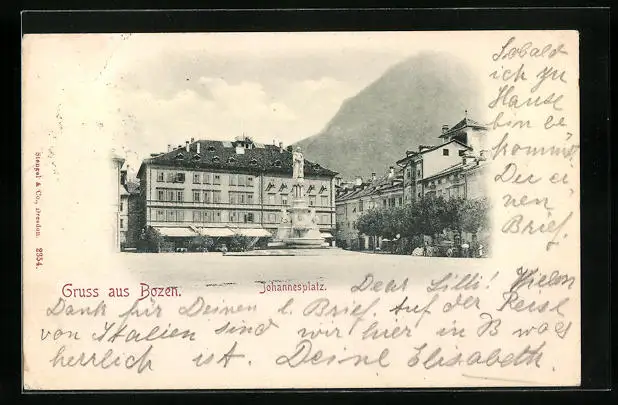 Sobald
ich zu
Hause
bin be
kommst
Du ei
nen
Brief.
Stengel & Co., Dresden. 2354
Gruss aus Bozen.
Johannesplatz.
Dear Lilli! Vielen
Dank für Deinen l. Brief. Auf der Reise
von Italien sind wir hier in B was
herrlich ist. Deine Elisabeth.